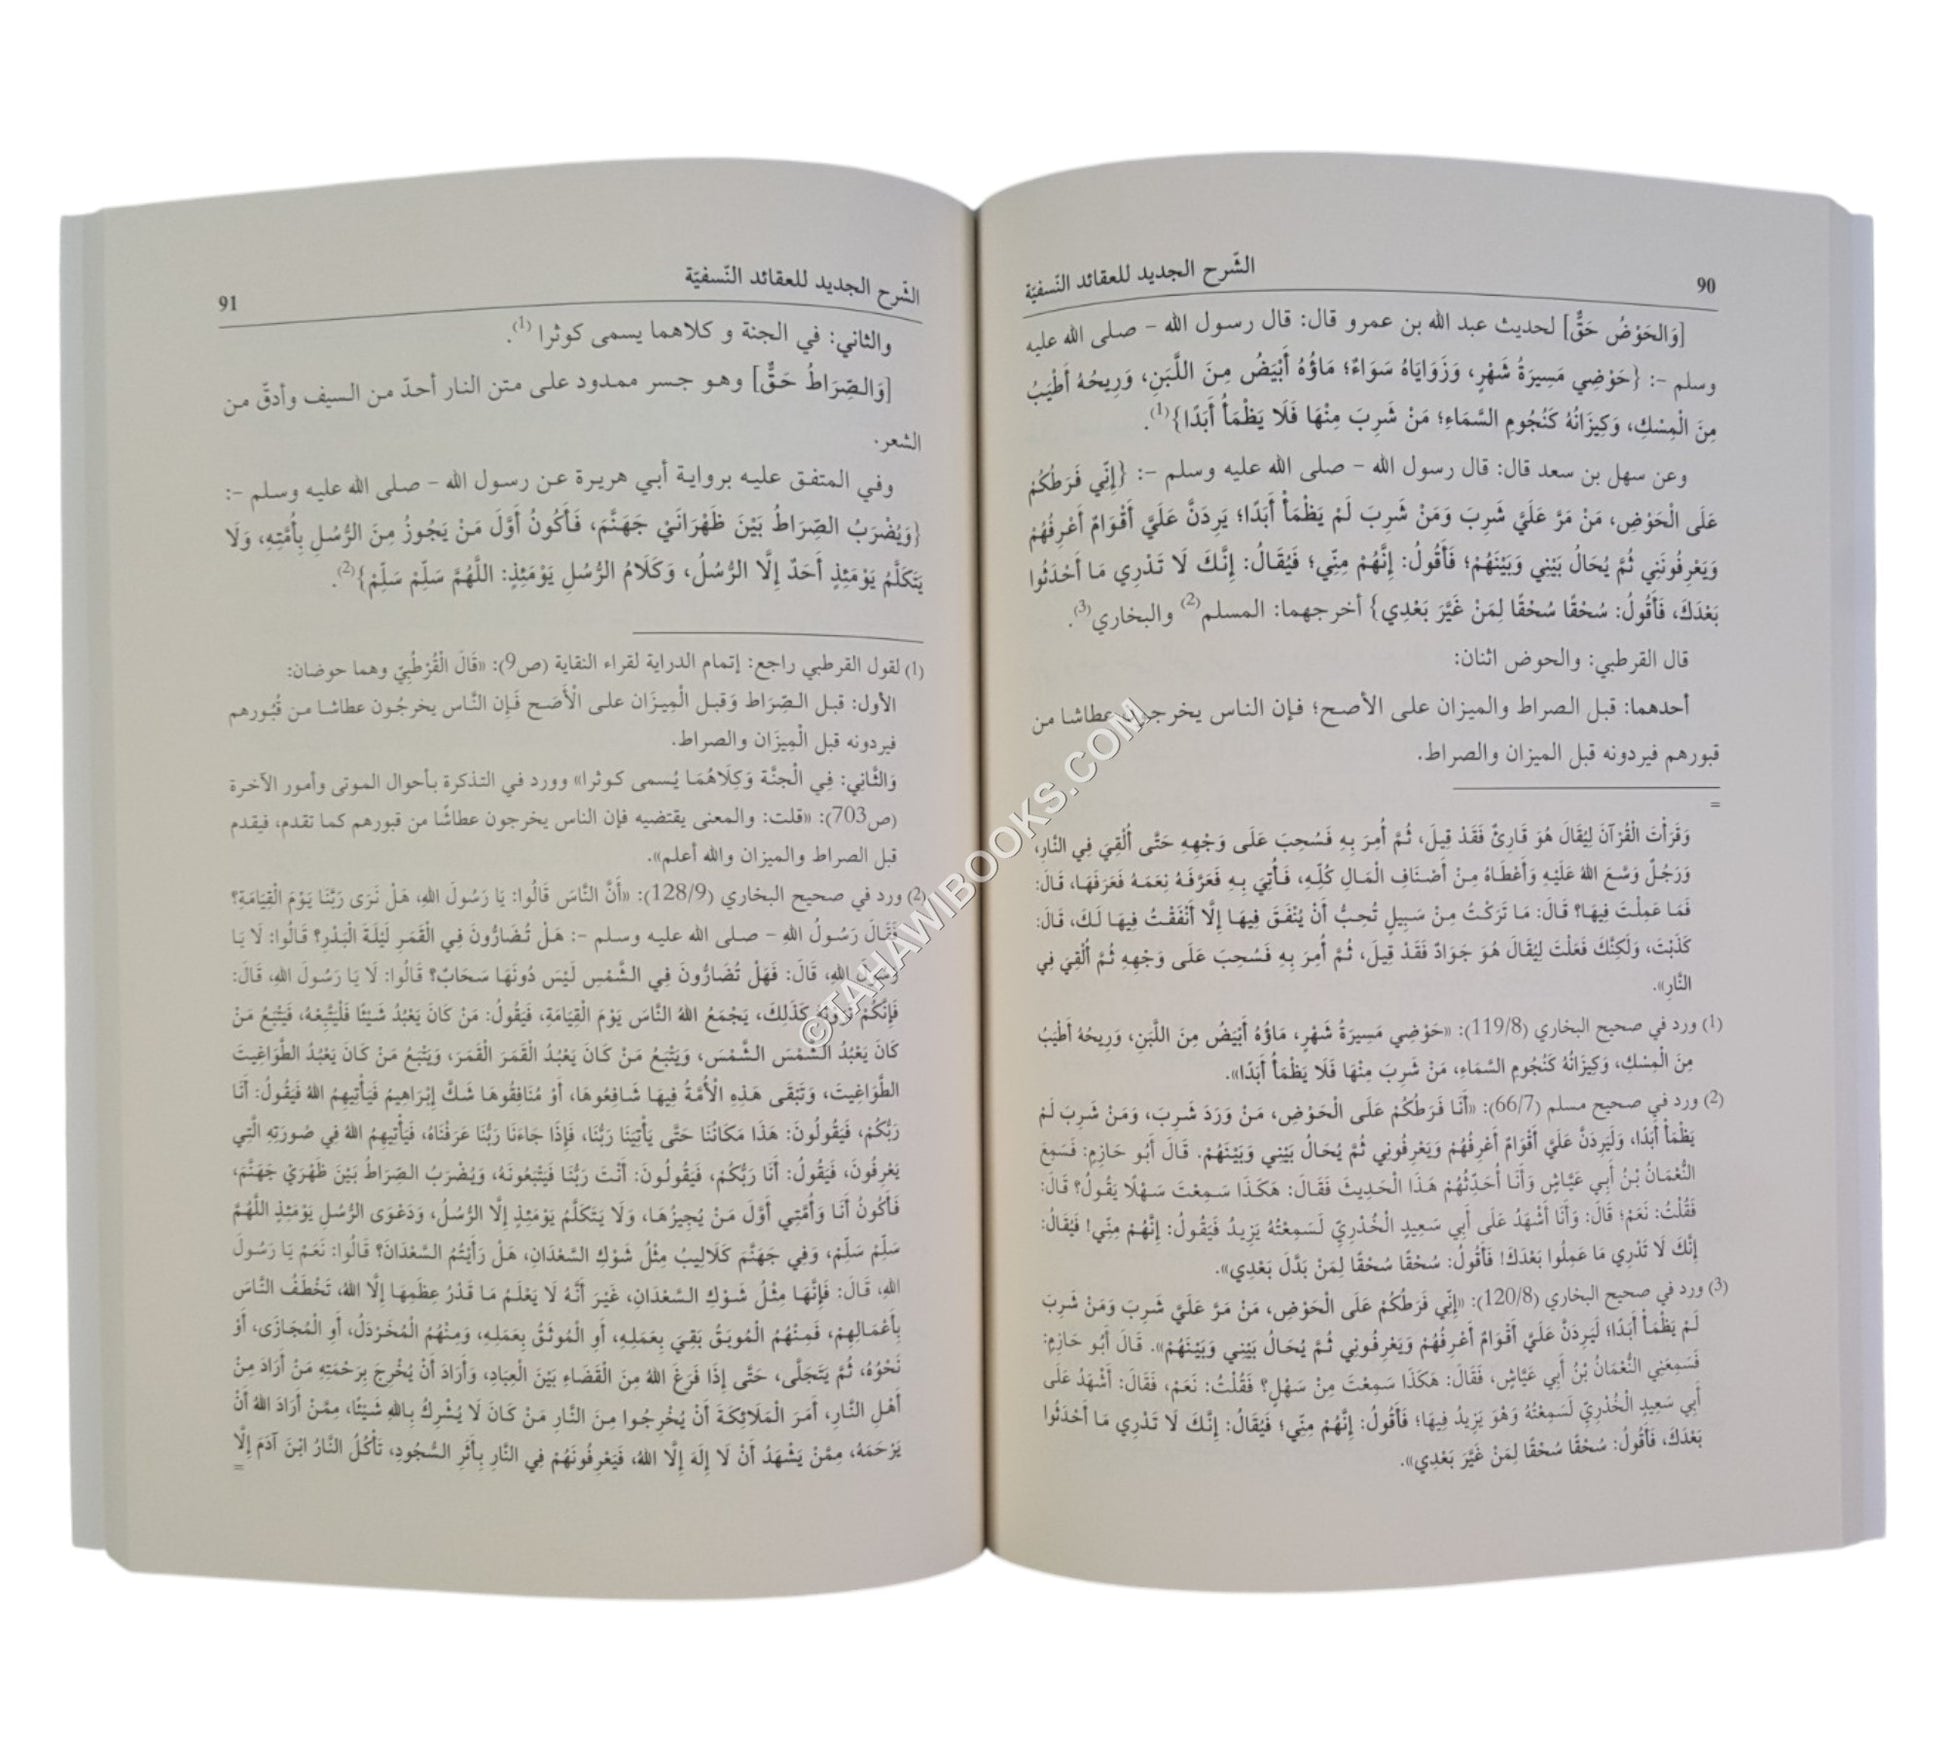 90
الشّرح الجديد للعقائد النّسفيّة
[وَالحَوْضُ حَقٌّ] لحديث عبد الله بن عمرو قال: قال رسول الله - صلى الله عليه
وسلم -: {حَوْضِي مَسِيرَةُ شَهْرٍ، وَزَوَايَاهُ سَوَاءٌ؛ مَاؤُهُ أَبْيَضُ مِنَ اللَّبَنِ، وَرِيحُهُ أَطْيَبُ
مِنَ الْمِسْكِ، وَكِيزَانُهُ كَنُجُومِ السَّمَاءِ؛ مَنْ شَرِبَ مِنْهَا فَلَا يَظْمَأُ أَبَدًا}(1).
وعن سهل بن سعد قال: قال رسول الله - صلى الله عليه وسلم -: {إِنِّي فَرَطُكُمْ
عَلَى الْحَوْضِ، مَنْ مَرَّ عَلَيَّ شَرِبَ وَمَنْ شَرِبَ لَمْ يَظْمَأْ أَبَدًا؛ يَرِدَنَّ عَلَيَّ أَقْوَامٌ أَعْرِفُهُمْ
وَيَعْرِفُونَنِي ثُمَّ يُحَالُ بَيْنِي وَبَيْنَهُمْ؛ فَأَقُولُ: إِنَّهُمْ مِنِّي؛ فَيُقَالُ: إِنَّكَ لَا تَدْرِي مَا أَحْدَثُوا
بَعْدَكَ، فَأَقُولُ: سُحْقًا سُحْقًا لِمَنْ غَيَّرَ بَعْدِي} أخرجهما: المسلم(2) والبخاري(3).
قال القرطبي: والحوض اثنان:
أحدهما: قبل الصراط والميزان على الأصح؛ فإن الناس يخرجون عطاشا من
قبورهم فيردونه قبل الميزان والصراط.
=
وَقَرَأْتَ الْقُرْآنَ لِيُقَالَ هُوَ قَارِئٌ فَقَدْ قِيلَ، ثُمَّ أُمِرَ بِهِ فَسُحِبَ عَلَى وَجْهِهِ حَتَّى أُلْقِيَ فِي النَّارِ،
وَرَجُلٌ وَسَّعَ اللهُ عَلَيْهِ وَأَعْطَاهُ مِنْ أَصْنَافِ الْمَالِ كُلِّهِ، فَأُتِيَ بِهِ فَعَرَّفَهُ نِعَمَهُ فَعَرَفَهَا، قَالَ:
فَمَا عَمِلْتَ فِيهَا؟ قَالَ: مَا تَرَكْتُ مِنْ سَبِيلٍ تُحِبُّ أَنْ يُنْفَقَ فِيهَا إِلَّا أَنْفَقْتُ فِيهَا لَكَ، قَالَ:
كَذَبْتَ، وَلَكِنَّكَ فَعَلْتَ لِيُقَالَ هُوَ جَوَادٌ فَقَدْ قِيلَ، ثُمَّ أُمِرَ بِهِ فَسُحِبَ عَلَى وَجْهِهِ ثُمَّ أُلْقِيَ فِي
النَّارِ».
(1) ورد في صحيح البخاري (119/8): «حَوْضِي مَسِيرَةُ شَهْرٍ، مَاؤُهُ أَبْيَضُ مِنَ اللَّبَنِ، وَرِيحُهُ أَطْيَبُ
مِنَ الْمِسْكِ، وَكِيزَانُهُ كَنُجُومِ السَّمَاءِ، مَنْ شَرِبَ مِنْهَا فَلَا يَظْمَأُ أَبَدًا».
(2) ورد في صحيح مسلم (66/7): «أَنَا فَرَطُكُمْ عَلَى الْحَوْضِ، مَنْ وَرَدَ شَرِبَ، وَمَنْ شَرِبَ لَمْ
يَظْمَأْ أَبَدًا، وَلَيَرِدَنَّ عَلَيَّ أَقْوَامٌ أَعْرِفُهُمْ وَيَعْرِفُونِي ثُمَّ يُحَالُ بَيْنِي وَبَيْنَهُمْ. قَالَ أَبُو حَازِمٍ: فَسَمِعَ
النُّعْمَانُ بْنُ أَبِي عَيَّاشٍ وَأَنَا أُحَدِّثُهُمْ هَذَا الْحَدِيثَ فَقَالَ: هَكَذَا سَمِعْتَ سَهْلًا يَقُولُ؟ قَالَ:
فَقُلْتُ: نَعَمْ؛ قَالَ: وَأَنَا أَشْهَدُ عَلَى أَبِي سَعِيدٍ الْخُدْرِيِّ لَسَمِعْتُهُ يَزِيدُ فَيَقُولُ: إِنَّهُمْ مِنِّي! فَيُقَالُ:
إِنَّكَ لَا تَدْرِي مَا عَمِلُوا بَعْدَكَ! فَأَقُولُ: سُحْقًا سُحْقًا لِمَنْ بَدَّلَ بَعْدِي».
(3) ورد في صحيح البخاري (120/8): «إِنِّي فَرَطُكُمْ عَلَى الْحَوْضِ، مَنْ مَرَّ عَلَيَّ شَرِبَ وَمَنْ شَرِبَ
لَمْ يَظْمَأْ أَبَدًا؛ لَيَرِدَنَّ عَلَيَّ أَقْوَامٌ أَعْرِفُهُمْ وَيَعْرِفُونِي ثُمَّ يُحَالُ بَيْنِي وَبَيْنَهُمْ». قَالَ أَبُو حَازِمٍ:
فَسَمِعَنِي النُّعْمَانُ بْنُ أَبِي عَيَّاشٍ، فَقَالَ: هَكَذَا سَمِعْتَ مِنْ سَهْلٍ؟ فَقُلْتُ: نَعَمْ، فَقَالَ: أَشْهَدُ عَلَى
أَبِي سَعِيدٍ الْخُدْرِيِّ لَسَمِعْتُهُ وَهْوَ يَزِيدُ فِيهَا؛ فَأَقُولُ: إِنَّهُمْ مِنِّي؛ فَيُقَالُ: إِنَّكَ لَا تَدْرِي مَا أَحْدَثُوا
بَعْدَكَ، فَأَقُولُ: سُحْقًا سُحْقًا لِمَنْ غَيَّرَ بَعْدِي».
الشّرح الجديد للعقائد النّسفيّة
91
والثاني: في الجنة و كلاهما يسمى كوثرا (1).
[وَالصِّرَاطُ حَقٌّ] وهو جسر ممدود على متن النار أحدّ من السيف وأدقّ من
الشعر.
وفي المتفق عليه برواية أبي هريرة عن رسول الله - صلى الله عليه وسلم -:
{وَيُضْرَبُ الصِّرَاطُ بَيْنَ ظَهْرَانَيْ جَهَنَّمَ، فَأَكُونُ أَوَّلَ مَنْ يَجُوزُ مِنَ الرُّسُلِ بِأُمَّتِهِ، وَلَا
يَتَكَلَّمُ يَوْمَئِذٍ أَحَدٌ إِلَّا الرُّسُلُ، وَكَلَامُ الرُّسُلِ يَوْمَئِذٍ: اللَّهُمَّ سَلِّمْ سَلِّمْ}(2).
(1) لقول القرطبي راجع: إتمام الدراية لقراء النقاية (ص9): «قَالَ الْقُرْطُبِيّ وهما حوضان:
الأول: قبل الصِّرَاط وَقبل الْمِيزَان على الْأَصَح فَإِن النَّاس يخرجُون عطاشا من قُبُورهم
فيردونه قبل الْمِيزَان والصراط.
وَالثَّانِي: فِي الْجنَّة وَكِلَاهُمَا يُسمى كوثرا» وورد في التذكرة بأحوال الموتى وأمور الآخرة
(ص703): «قلت: والمعنى يقتضيه فإن الناس يخرجون عطاشًا من قبورهم كما تقدم، فيقدم
قبل الصراط والميزان والله أعلم».
(2) ورد في صحيح البخاري (128/9): «أَنَّ النَّاسَ قَالُوا: يَا رَسُولَ اللهِ، هَلْ نَرَى رَبَّنَا يَوْمَ الْقِيَامَةِ؟
فَقَالَ رَسُولُ اللهِ - صلى الله عليه وسلم -: هَلْ تُضَارُّونَ فِي الْقَمَرِ لَيْلَةَ الْبَدْرِ؟ قَالُوا: لَا يَا
رَسُولَ اللهِ، قَالَ: فَهَلْ تُضَارُّونَ فِي الشَّمْسِ لَيْسَ دُونَهَا سَحَابٌ؟ قَالُوا: لَا يَا رَسُولَ اللهِ، قَالَ:
فَإِنَّكُمْ تَرَوْنَهُ كَذَلِكَ، يَجْمَعُ اللهُ النَّاسَ يَوْمَ الْقِيَامَةِ، فَيَقُولُ: مَنْ كَانَ يَعْبُدُ شَيْئًا فَلْيَتَّبِعْهُ، فَيَتْبَعُ مَنْ
كَانَ يَعْبُدُ الشَّمْسَ الشَّمْسَ، وَيَتْبَعُ مَنْ كَانَ يَعْبُدُ الْقَمَرَ الْقَمَرَ، وَيَتْبَعُ مَنْ كَانَ يَعْبُدُ الطَّوَاغِيتَ
الطَّوَاغِيتَ، وَتَبْقَى هَذِهِ الْأُمَّةُ فِيهَا شَافِعُوهَا، أَوْ مُنَافِقُوهَا شَكَّ إِبْرَاهِيمُ فَيَأْتِيهِمُ اللهُ فَيَقُولُ: أَنَا
رَبُّكُمْ، فَيَقُولُونَ: هَذَا مَكَانُنَا حَتَّى يَأْتِيَنَا رَبُّنَا، فَإِذَا جَاءَنَا رَبُّنَا عَرَفْنَاهُ، فَيَأْتِيهِمُ اللهُ فِي صُورَتِهِ الَّتِي
يَعْرِفُونَ، فَيَقُولُ: أَنَا رَبُّكُمْ، فَيَقُولُونَ: أَنْتَ رَبُّنَا فَيَتْبَعُونَهُ، وَيُضْرَبُ الصِّرَاطُ بَيْنَ ظَهْرَيْ جَهَنَّمَ،
فَأَكُونُ أَنَا وَأُمَّتِي أَوَّلَ مَنْ يُجِيزُهَا، وَلَا يَتَكَلَّمُ يَوْمَئِذٍ إِلَّا الرُّسُلُ، وَدَعْوَى الرُّسُلِ يَوْمَئِذٍ اللَّهُمَّ
سَلِّمْ سَلِّمْ، وَفِي جَهَنَّمَ كَلَالِيبُ مِثْلُ شَوْكِ السَّعْدَانِ، هَلْ رَأَيْتُمُ السَّعْدَانَ؟ قَالُوا: نَعَمْ يَا رَسُولَ
اللهِ، قَالَ: فَإِنَّهَا مِثْلُ شَوْكِ السَّعْدَانِ، غَيْرَ أَنَّهُ لَا يَعْلَمُ مَا قَدْرُ عِظَمِهَا إِلَّا اللهُ، تَخْطَفُ النَّاسَ
بِأَعْمَالِهِمْ، فَمِنْهُمُ الْمُوبَقُ بَقِيَ بِعَمَلِهِ، أَوِ الْمُوثَقُ بِعَمَلِهِ، وَمِنْهُمُ الْمُخَرْدَلُ، أَوِ الْمُجَازَى، أَوْ
نَحْوُهُ، ثُمَّ يَتَجَلَّى، حَتَّى إِذَا فَرَغَ اللهُ مِنَ الْقَضَاءِ بَيْنَ الْعِبَادِ، وَأَرَادَ أَنْ يُخْرِجَ بِرَحْمَتِهِ مَنْ أَرَادَ مِنْ
أَهْلِ النَّارِ، أَمَرَ الْمَلَائِكَةَ أَنْ يُخْرِجُوا مِنَ النَّارِ مَنْ كَانَ لَا يُشْرِكُ بِاللهِ شَيْئًا، مِمَّنْ أَرَادَ اللهُ أَنْ
يَرْحَمَهُ، مِمَّنْ يَشْهَدُ أَنْ لَا إِلَهَ إِلَّا اللهُ، فَيَعْرِفُونَهُمْ فِي النَّارِ بِأَثَرِ السُّجُودِ، تَأْكُلُ النَّارُ ابْنَ آدَمَ إِلَّا
=
©TAHAWIBOOKS.COM